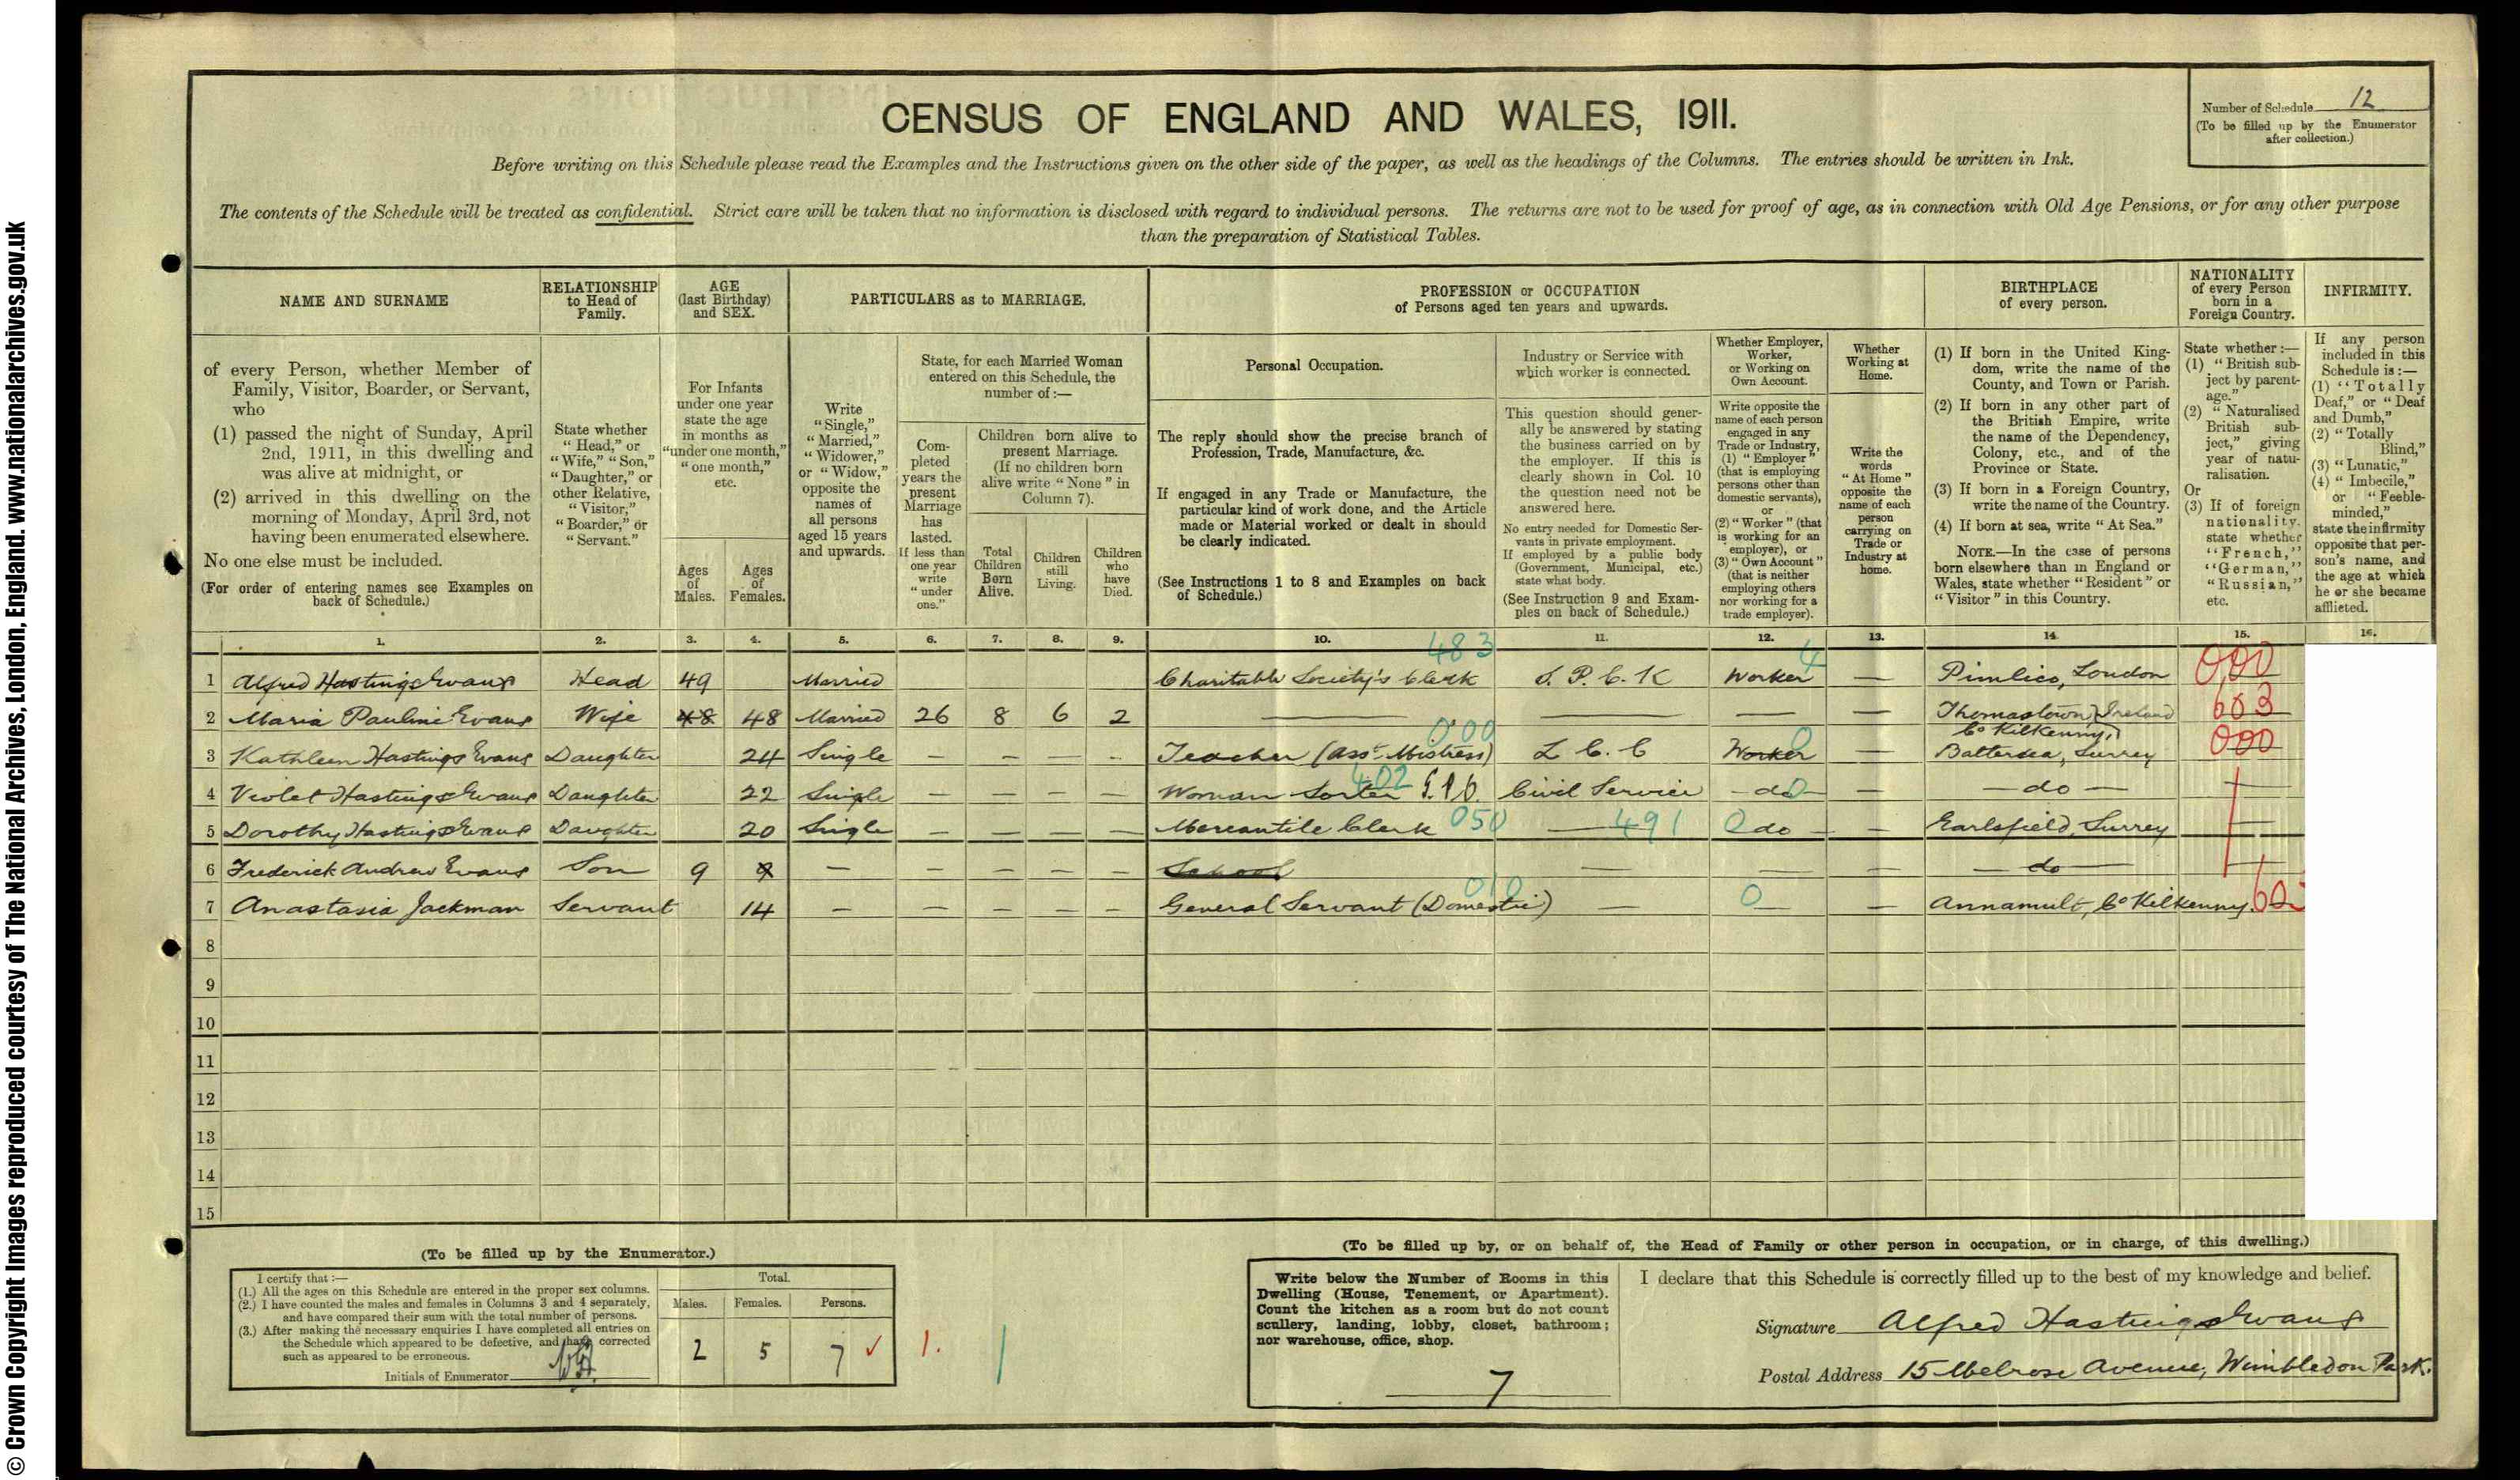 © Crown Copyright Images reproduced courtesy of The National Archives, London, England. www.nationalarchives.gov.uk
CENSUS OF ENGLAND AND WALES, 1911.
Number of Schedule 12
(To be filled up by the Enumerator
after collection.)
Before writing on this Schedule please read the Examples and the Instructions given on the other side of the paper, as well as the headings of the Columns. The entries should be written in Ink.
The contents of the Schedule will be treated as confidential. Strict care will be taken that no information is disclosed with regard to individual persons. The returns are not to be used for proof of age, as in connection with Old Age Pensions, or for any other purpose
than the preparation of Statistical Tables.
NAME AND SURNAME
of every Person, whether Member of
Family, Visitor, Boarder, or Servant,
who
(1) passed the night of Sunday, April
2nd, 1911, in this dwelling and
was alive at midnight, or
(2) arrived in this dwelling on the
morning of Monday, April 3rd, not
having been enumerated elsewhere.
No one else must be included.
(For order of entering names see Examples on
back of Schedule.)
RELATIONSHIP
to Head of
Family.
State whether
"Head," or
"Wife," "Son,"
"Daughter," or
other Relative,
"Visitor,"
"Boarder," or
"Servant."
AGE
(last Birthday)
and SEX.
For Infants
under one year
state the age
in months as
"under one month,"
"one month,"
etc.
Ages
of
Males.
Ages
of
Females.
PARTICULARS as to MARRIAGE.
Write
"Single,"
"Married,"
"Widower,"
or "Widow,"
opposite the
names of
all persons
aged 15 years
and upwards.
State, for each Married Woman
entered on this Schedule, the
number of:—
Com-
pleted
years the
present
Marriage
has
lasted.
If less than
one year
write
"under
one."
Children born alive to
present Marriage.
(If no children born
alive write "None" in
Column 7).
Total
Children
Born
Alive.
Children
still
Living.
Children
who
have
Died.
PROFESSION or OCCUPATION
of Persons aged ten years and upwards.
Personal Occupation.
The reply should show the precise branch of
Profession, Trade, Manufacture, &c.
If engaged in any Trade or Manufacture, the
particular kind of work done, and the Article
made or Material worked or dealt in should
be clearly indicated.
(See Instructions 1 to 8 and Examples on back
of Schedule.)
Industry or Service with
which worker is connected.
This question should gener-
ally be answered by stating
the business carried on by
the employer. If this is
clearly shown in Col. 10
the question need not be
answered here.
No entry needed for Domestic Ser-
vants in private employment.
If employed by a public body
(Government, Municipal, etc.)
state what body.
(See Instruction 9 and Exam-
ples on back of Schedule.)
Whether Employer,
Worker,
or Working on
Own Account.
Write opposite the
name of each person
engaged in any
Trade or Industry,
(1) "Employer"
(that is employing
persons other than
domestic servants),
or
(2) "Worker" (that
is working for an
employer), or
(3) "Own Account"
(that is neither
employing others
nor working for a
trade employer).
Whether
Working at
Home.
Write the
words
"At Home"
opposite the
name of each
person
carrying on
Trade or
Industry at
home.
BIRTHPLACE
of every person.
(1) If born in the United King-
dom, write the name of the
County, and Town or Parish.
(2) If born in any other part of
the British Empire, write
the name of the Dependency,
Colony, etc., and of the
Province or State.
(3) If born in a Foreign Country,
write the name of the Country.
(4) If born at sea, write "At Sea."
NOTE.—In the case of persons
born elsewhere than in England or
Wales, state whether "Resident" or
"Visitor" in this Country.
NATIONALITY
of every Person
born in a
Foreign Country.
State whether:—
(1) "British sub-
ject by parent-
age."
(2) "Naturalised
British sub-
ject," giving
year of natu-
ralisation.
Or
(3) If of foreign
nationality,
state whether
"French,"
"German,"
"Russian,"
etc.
INFIRMITY.
If any person
included in this
Schedule is:—
(1) "Totally
Deaf," or "Deaf
and Dumb,"
(2) "Totally
Blind,"
(3) "Lunatic,"
(4) "Imbecile,"
or "Feeble-
minded,"
state the infirmity
opposite that per-
son's name, and
the age at which
he or she became
afflicted.
1. 2. 3. 4. 5. 6. 7. 8. 9. 10. 11. 12. 13. 14. 15. 16.
483 4
1 Alfred Hastings Evans Head 49 Married Charitable Society's Clerk S. P. C. K Worker — Pimlico, London 000
2 Maria Pauline Evans Wife 48 48 Married 26 8 6 2 — — — — Thomastown, Ireland 603
000 0 Co Kilkenny
3 Kathleen Hastings Evans Daughter 24 Single — — — — Teacher (Asst. Mistress) L C C Worker — Battersea, Surrey 000
402
4 Violet Hastings Evans Daughter 22 Single — — — — Woman Sorter G.P.O. Civil Service - do - 0 — — do —
5 Dorothy Hastings Evans Daughter 20 Single — — — — Mercantile Clerk 050 — 491 0 do — — Earlsfield, Surrey
6 Frederick Andrew Evans Son 9 9 — — — — — School — — — do
010
7 Anastasia Jackman Servant 14 — — — — — General Servant (Domestic) — 0 — Annamult, Co Kilkenny.
8
9
10
11
12
13
14
15
(To be filled up by the Enumerator.)
I certify that:—
(1.) All the ages on this Schedule are entered in the proper sex columns.
(2.) I have counted the males and females in Columns 3 and 4 separately,
and have compared their sum with the total number of persons.
(3.) After making the necessary enquiries I have completed all entries on
the Schedule which appeared to be defective, and have corrected
such as appeared to be erroneous.
Initials of Enumerator
Total.
Males. Females. Persons.
2 5 7 ✓ 1.
(To be filled up by, or on behalf of, the Head of Family or other person in occupation, or in charge, of this dwelling.)
Write below the Number of Rooms in this
Dwelling (House, Tenement, or Apartment).
Count the kitchen as a room but do not count
scullery, landing, lobby, closet, bathroom;
nor warehouse, office, shop.
7
I declare that this Schedule is correctly filled up to the best of my knowledge and belief.
Signature Alfred Hastings Evans
Postal Address 15 Melrose Avenue, Wimbledon Park.